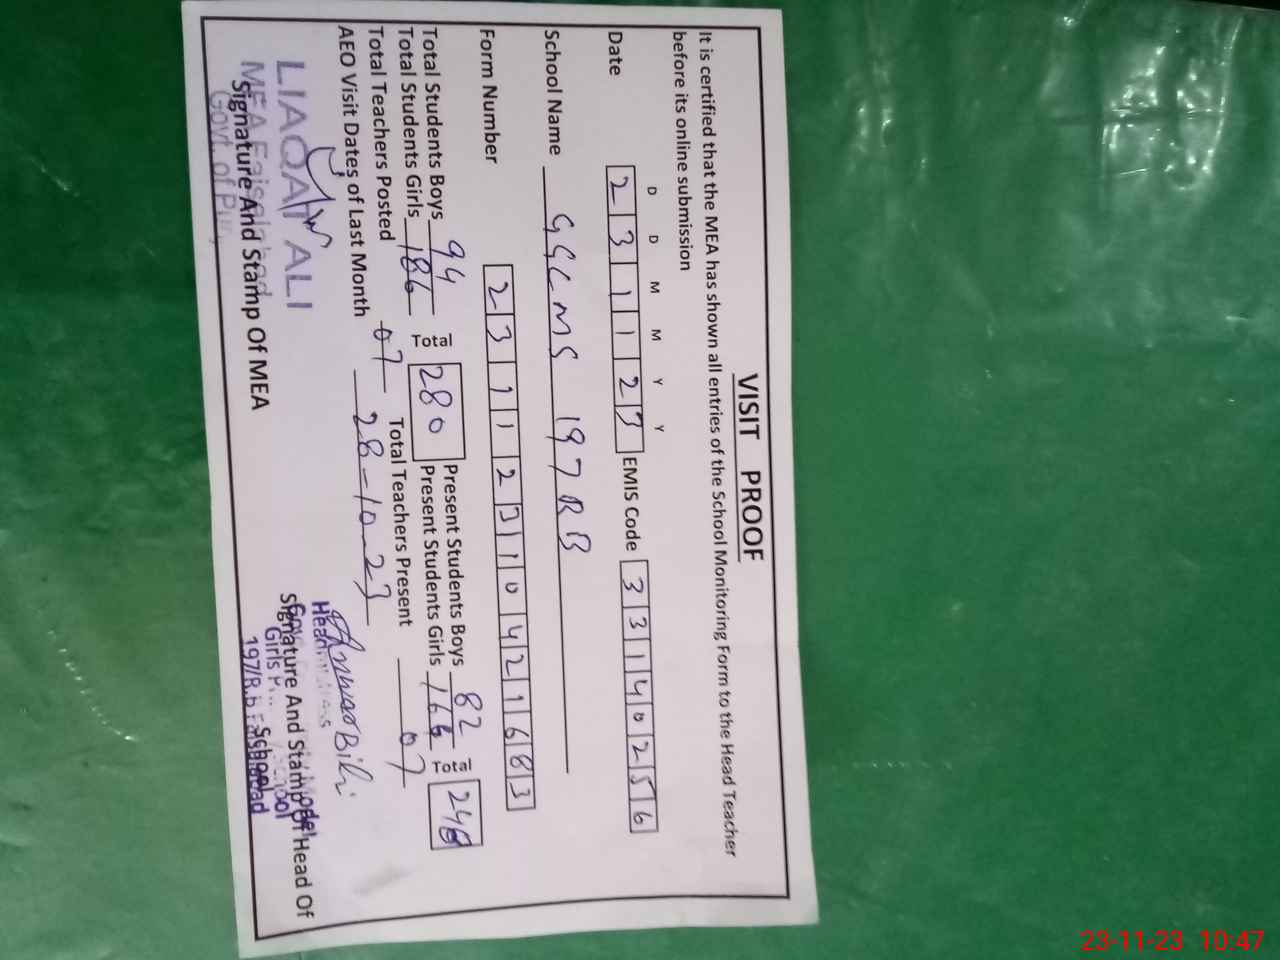 VISIT PROOF
It is certified that the MEA has shown all entries of the School Monitoring Form to the Head Teacher
before its online submission
D D M M Y Y
Date 2 3 1 1 2 3 EMIS Code 3 3 1 4 0 2 5 6
School Name GGCMS 197RB
Form Number 2 3 1 1 2 3 1 0 4 2 1 6 8 3
Total Students Boys 94 Present Students Boys 82
Total Students Girls 186 Total 280 Present Students Girls 166 Total 248
Total Teachers Posted 07 Total Teachers Present 07
AEO Visit Dates of Last Month 28-10-23
LIAQAT ALI
MEA Faisalabad
Govt. of
Signature And Stamp Of MEA
Signature And Stamp Of Head Of
School
Model
Girls School
197/R.b Faisalabad
23-11-23 10:47